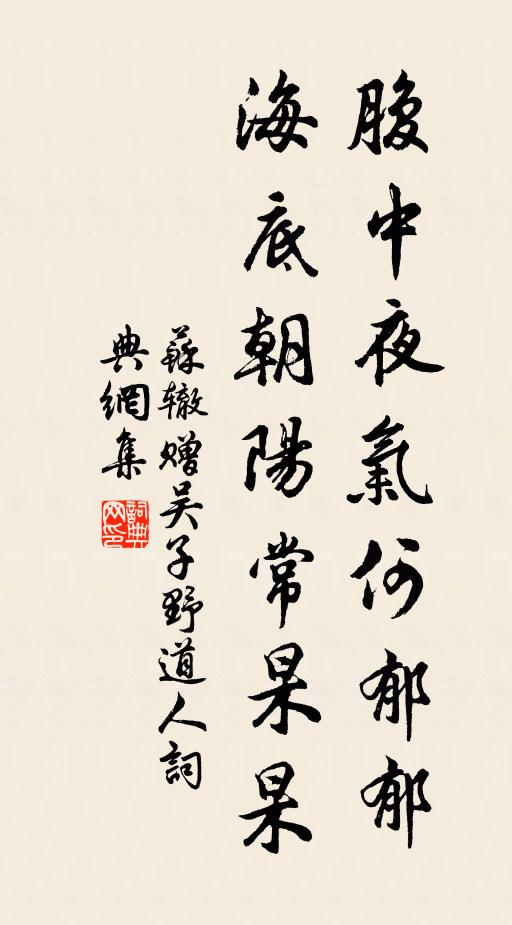 腹中夜氣何郁郁
海底朝陽常杲杲
蘇辙贈吴子野道人詞
典網集
詞典
网印